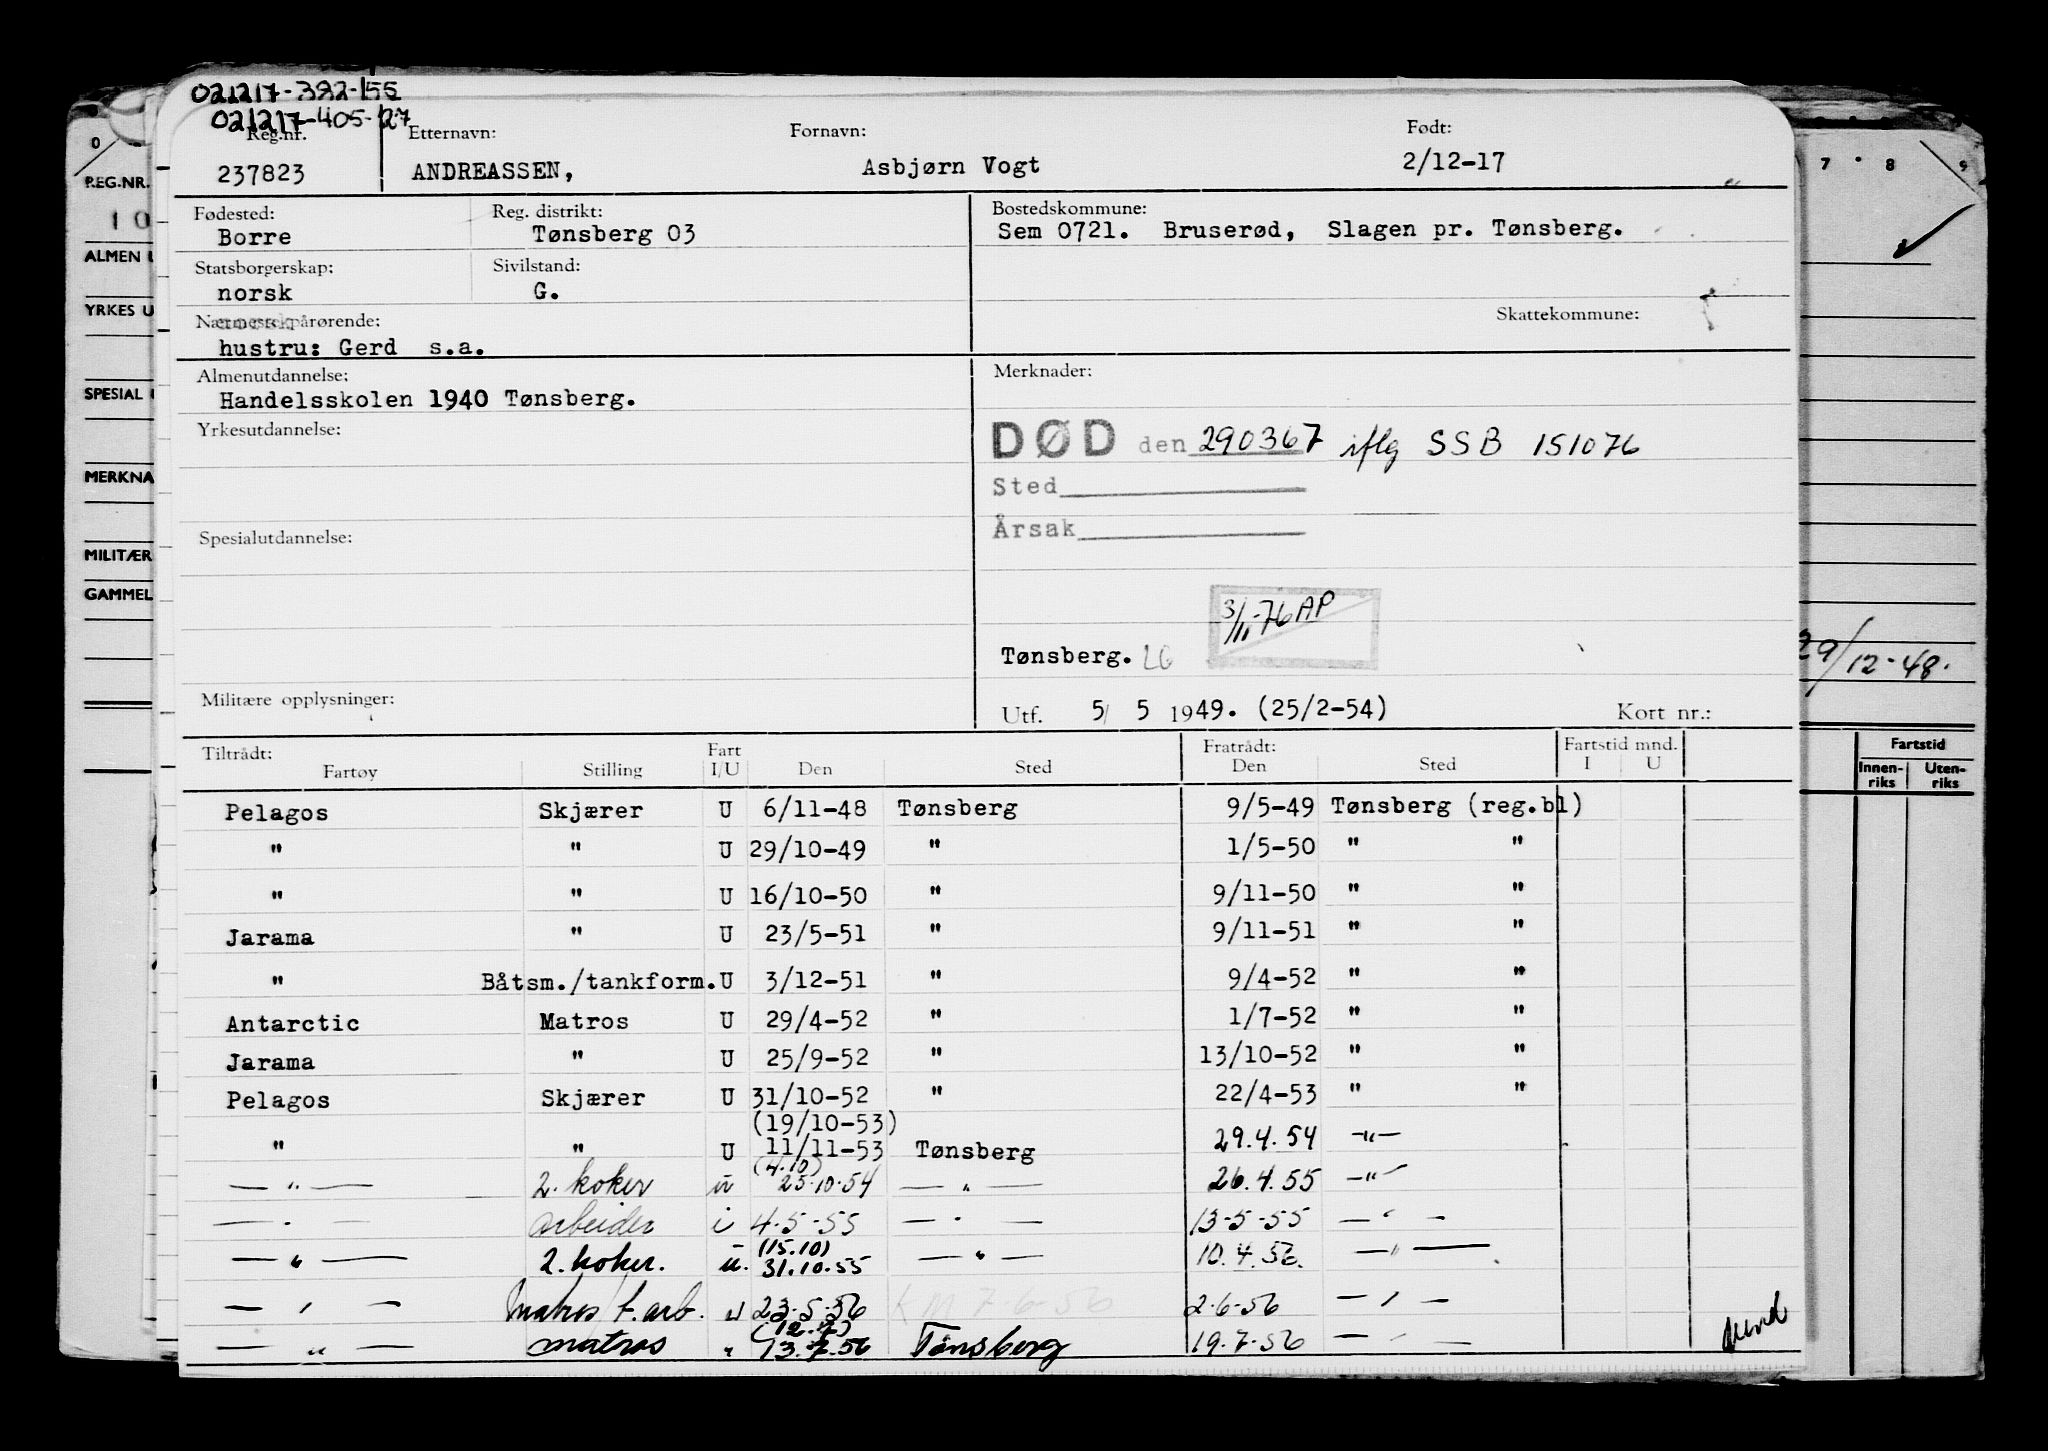 021217-392-155
021217-405-127
Reg.nr. Etternavn: Fornavn: Født:
237823 ANDREASSEN, Asbjørn Vogt 2/12-17
Fødested: Reg. distrikt: Bostedskommune:
Borre Tønsberg 03 Sem 0721. Bruserød, Slagen pr. Tønsberg.
Statsborgerskap: Sivilstand:
norsk G.
Nærmeste pårørende: Skattekommune:
hustru: Gerd s.a.
Almenutdannelse: Merknader:
Handelsskolen 1940 Tønsberg.
Yrkesutdannelse:
DØD den 290367 iflg SSB 151076
Sted
Årsak
Spesialutdannelse:
3/11-76 AP
Tønsberg. LG
Militære opplysninger: Utf. 5/ 5 1949. (25/2-54) Kort nr.:
Tiltrådt: Fart Fratrådt: Fartstid mnd.
Fartøy Stilling I/U Den Sted Den Sted I U
Pelagos Skjærer U 6/11-48 Tønsberg 9/5-49 Tønsberg (reg.bl)
" " U 29/10-49 " 1/5-50 " "
" " U 16/10-50 " 9/11-50 " "
Jarama " U 23/5-51 " 9/11-51 " "
" Båtsm./tankform. U 3/12-51 " 9/4-52 " "
Antarctic Matros U 29/4-52 " 1/7-52 " "
Jarama " U 25/9-52 " 13/10-52 " "
Pelagos Skjærer U 31/10-52 " 22/4-53 " "
(19/10-53)
" " U 11/11-53 Tønsberg 29.4.54 —"—
(4.10)
—"— 2. koker u 25.10.54 —"— 26.4.55 —"—
—"— arbeider i 4-5-55 —"— 13-5-55 —"—
(15.10)
—"— 2. koker. u. 31.10.55 —"— 10.4.56. —"—
—"— Matros/t.arb. u 23-5-56 KM 7-6-56 2-6-56 —"—
(12.7)
—"— matros " 13.7.56 Tønsberg 19.7-56 —"—
0
REG.NR.
10
ALMEN U
YRKES U
SPESIAL
MERKNA
MILITÆR
GAMMEL
7 8 9
29/12-48.
Fartstid
Innen-riks Uten-riks